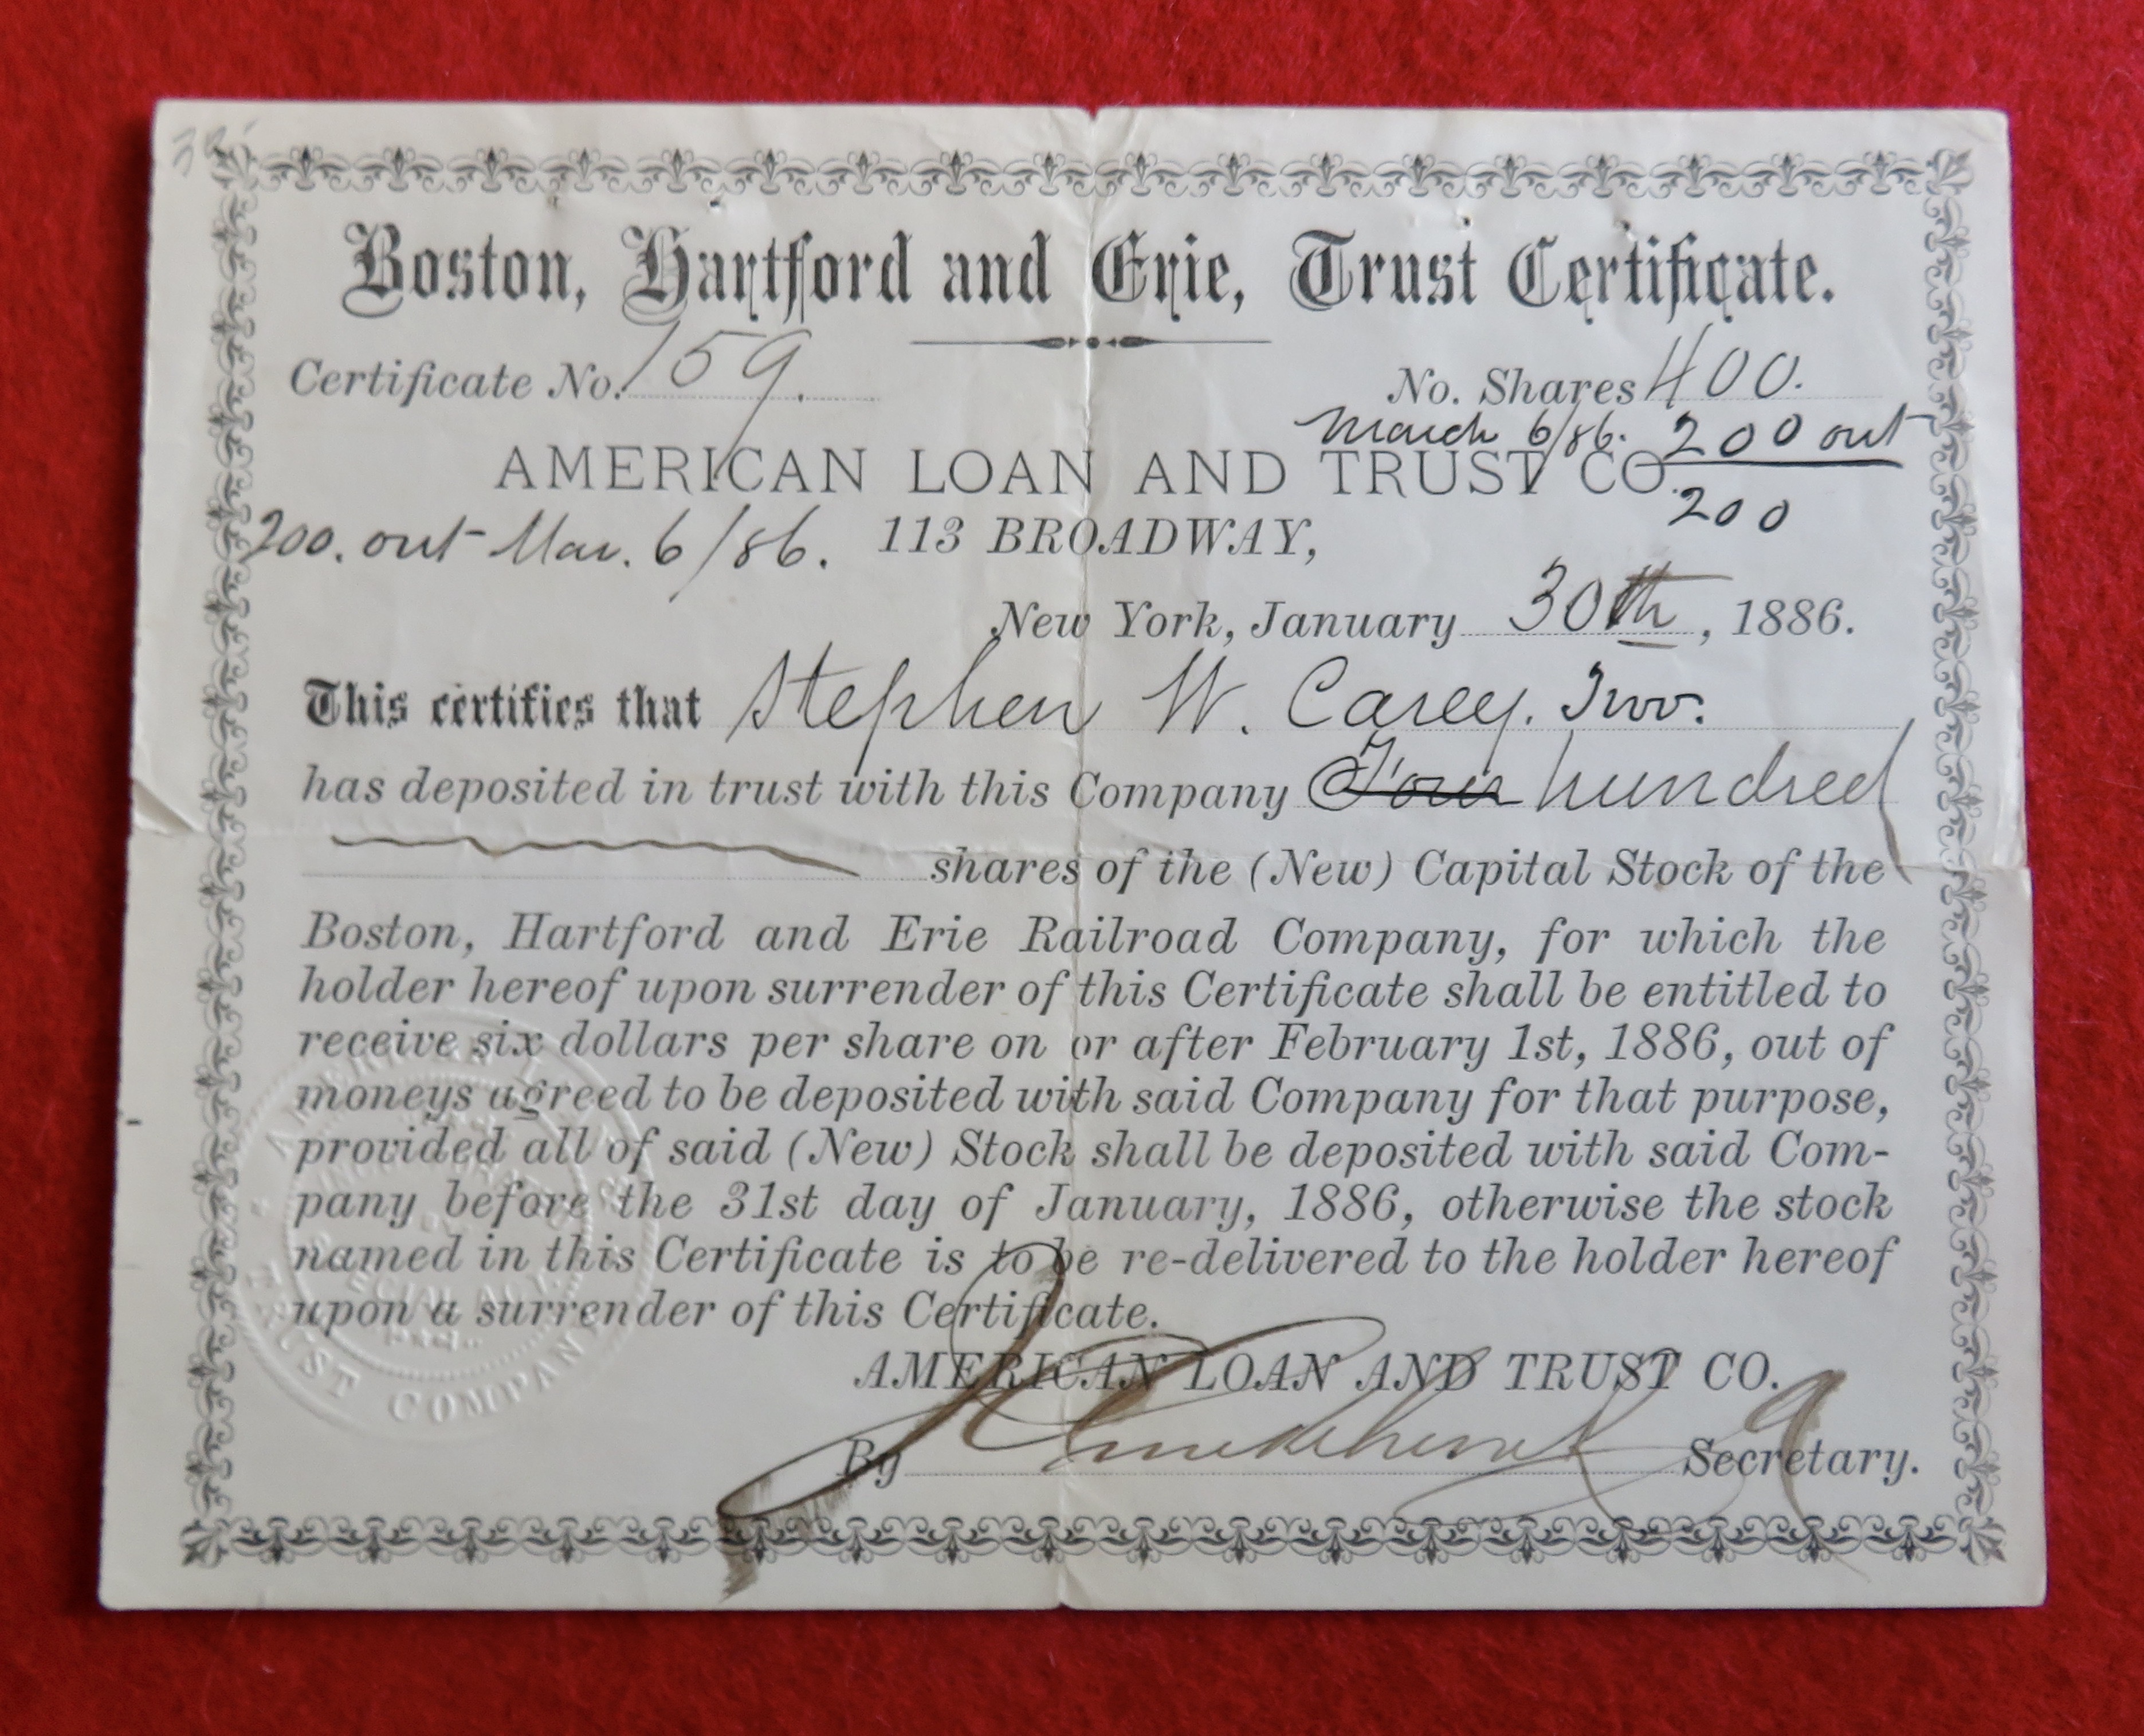 Boston, Hartford and Erie, Trust Certificate.
Certificate No. 159. No. Shares 400.
March 6/86. 200 out
AMERICAN LOAN AND TRUST CO.
200
200. out Mar. 6/86. 113 BROADWAY,
New York, January 30th, 1886.
This certifies that Stephen W. Carey. Two.
has deposited in trust with this Company Four hundred
shares of the (New) Capital Stock of the
Boston, Hartford and Erie Railroad Company, for which the
holder hereof upon surrender of this Certificate shall be entitled to
receive six dollars per share on or after February 1st, 1886, out of
moneys agreed to be deposited with said Company for that purpose,
provided all of said (New) Stock shall be deposited with said Com-
pany before the 31st day of January, 1886, otherwise the stock
named in this Certificate is to be re-delivered to the holder hereof
upon a surrender of this Certificate.
AMERICAN LOAN AND TRUST CO.
By Secretary.
AMERICAN TRUST COMPANY